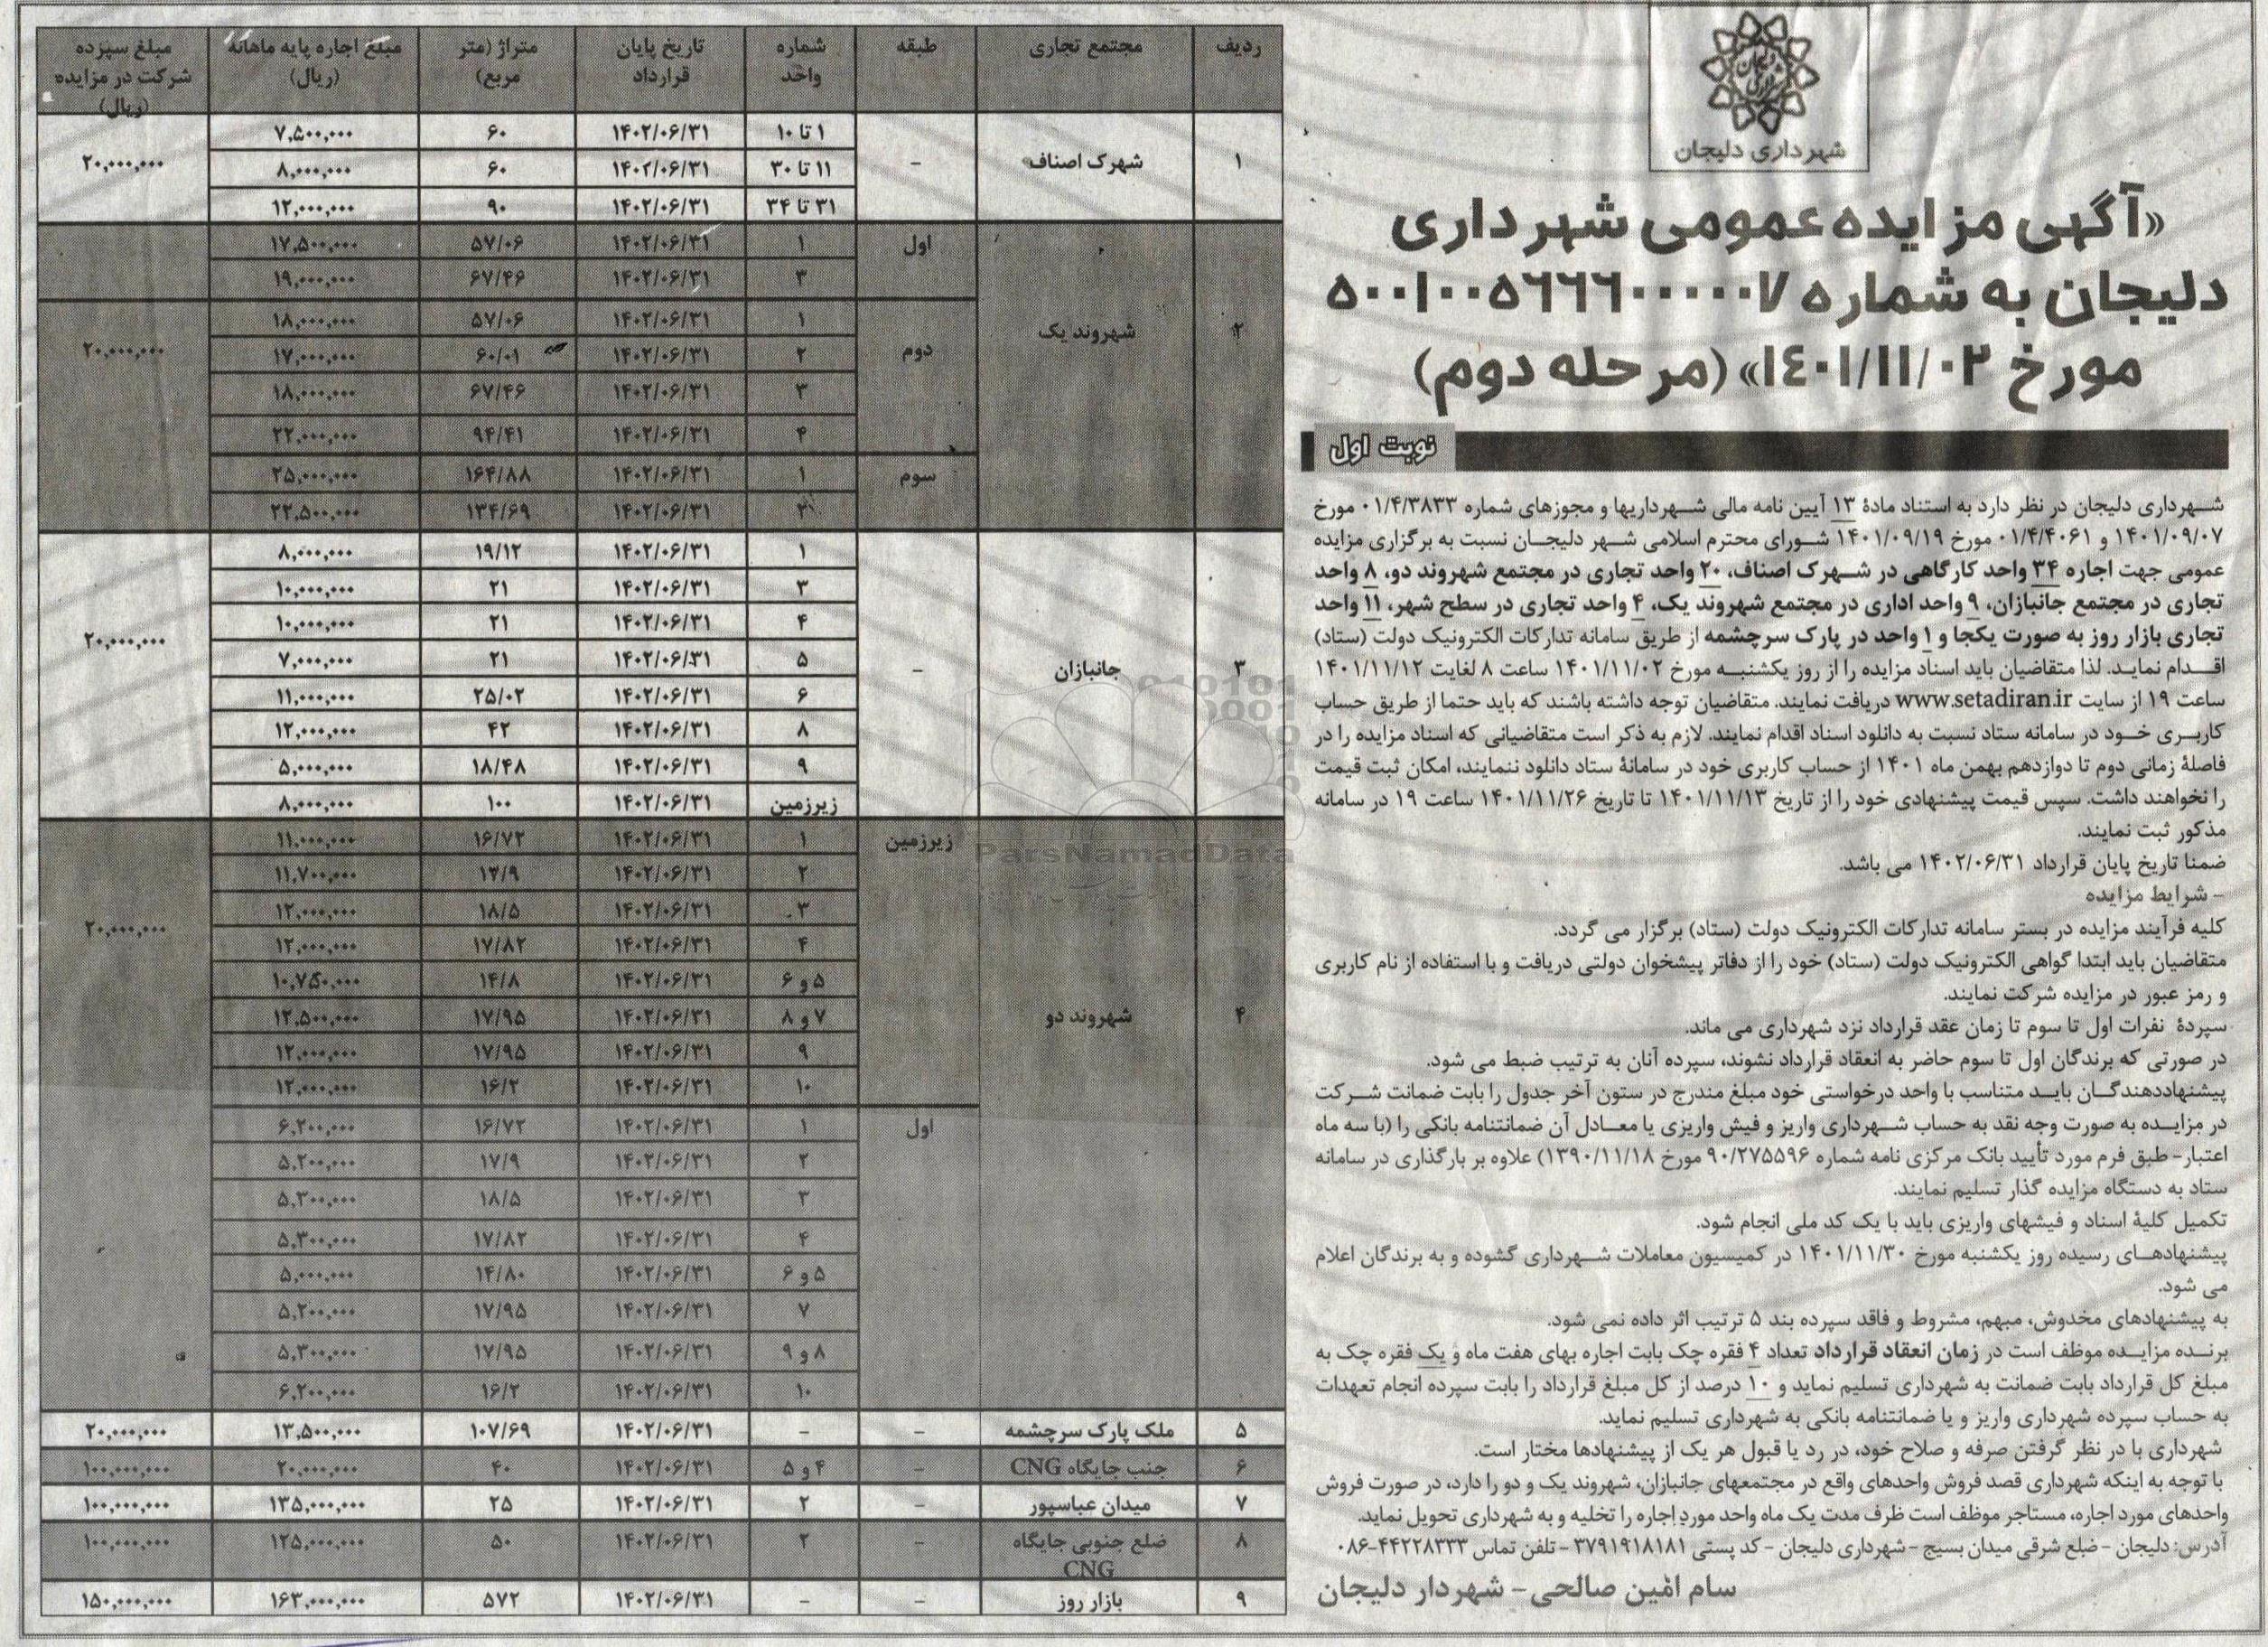 شهرداری دلیجان
«آگهی مزایده عمومی شهرداری
دلیجان به شماره ۵۰۰۱۰۰۵۶۶۶۰۰۰۰۰۷
مورخ ۱۴۰۱/۱۱/۰۲» (مرحله دوم)
نوبت اول
شهرداری دلیجان در نظر دارد به استناد مادهٔ ۱۳ آیین نامه مالی شهرداریها و مجوزهای شماره ۰۱/۴/۳۸۳۳ مورخ
۱۴۰۱/۰۹/۰۷ و ۰۱/۴/۴۰۶۱ مورخ ۱۴۰۱/۰۹/۱۹ شورای محترم اسلامی شهر دلیجان نسبت به برگزاری مزایده
عمومی جهت اجاره ۳۴ واحد کارگاهی در شهرک اصناف، ۲۰ واحد تجاری در مجتمع شهروند دو، ۸ واحد
تجاری در مجتمع جانبازان، ۹ واحد اداری در مجتمع شهروند یک، ۴ واحد تجاری در سطح شهر، ۱۱ واحد
تجاری بازار روز به صورت یکجا و ۱ واحد در پارک سرچشمه از طریق سامانه تدارکات الکترونیک دولت (ستاد)
اقدام نماید. لذا متقاضیان باید اسناد مزایده را از روز یکشنبه مورخ ۱۴۰۱/۱۱/۰۲ ساعت ۸ لغایت ۱۴۰۱/۱۱/۱۲
ساعت ۱۹ از سایت www.setadiran.ir دریافت نمایند. متقاضیان توجه داشته باشند که باید حتما از طریق حساب
کاربری خود در سامانه ستاد نسبت به دانلود اسناد اقدام نمایند. لازم به ذکر است متقاضیانی که اسناد مزایده را در
فاصلهٔ زمانی دوم تا دوازدهم بهمن ماه ۱۴۰۱ از حساب کاربری خود در سامانهٔ ستاد دانلود ننمایند، امکان ثبت قیمت
را نخواهند داشت. سپس قیمت پیشنهادی خود را از تاریخ ۱۴۰۱/۱۱/۱۳ تا تاریخ ۱۴۰۱/۱۱/۲۶ ساعت ۱۹ در سامانه
مذکور ثبت نمایند.
ضمنا تاریخ پایان قرارداد ۱۴۰۲/۰۶/۳۱ می باشد.
- شرایط مزایده
کلیه فرآیند مزایده در بستر سامانه تدارکات الکترونیک دولت (ستاد) برگزار می گردد.
متقاضیان باید ابتدا گواهی الکترونیک دولت (ستاد) خود را از دفاتر پیشخوان دولتی دریافت و با استفاده از نام کاربری
و رمز عبور در مزایده شرکت نمایند.
سپردهٔ نفرات اول تا سوم تا زمان عقد قرارداد نزد شهرداری می ماند.
در صورتی که برندگان اول تا سوم حاضر به انعقاد قرارداد نشوند، سپرده آنان به ترتیب ضبط می شود.
پیشنهاددهندگان باید متناسب با واحد درخواستی خود مبلغ مندرج در ستون آخر جدول را بابت ضمانت شرکت
در مزایده به صورت وجه نقد به حساب شهرداری واریز و فیش واریزی یا معادل آن ضمانتنامه بانکی را (با سه ماه
اعتبار- طبق فرم مورد تأیید بانک مرکزی نامه شماره ۹۰/۲۷۵۵۹۶ مورخ ۱۳۹۰/۱۱/۱۸) علاوه بر بارگذاری در سامانه
ستاد به دستگاه مزایده گذار تسلیم نمایند.
تکمیل کلیهٔ اسناد و فیشهای واریزی باید با یک کد ملی انجام شود.
پیشنهادهای رسیده روز یکشنبه مورخ ۱۴۰۱/۱۱/۳۰ در کمیسیون معاملات شهرداری گشوده و به برندگان اعلام
می شود.
به پیشنهادهای مخدوش، مبهم، مشروط و فاقد سپرده بند ۵ ترتیب اثر داده نمی شود.
برنده مزایده موظف است در زمان انعقاد قرارداد تعداد ۴ فقره چک بابت اجاره بهای هفت ماه و یک فقره چک به
مبلغ کل قرارداد بابت ضمانت به شهرداری تسلیم نماید و ۱۰ درصد از کل مبلغ قرارداد را بابت سپرده انجام تعهدات
به حساب سپرده شهرداری واریز و یا ضمانتنامه بانکی به شهرداری تسلیم نماید.
شهرداری با در نظر گرفتن صرفه و صلاح خود، در رد یا قبول هر یک از پیشنهادها مختار است.
با توجه به اینکه شهرداری قصد فروش واحدهای واقع در مجتمعهای جانبازان، شهروند یک و دو را دارد، در صورت فروش
واحدهای مورد اجاره، مستاجر موظف است ظرف مدت یک ماه واحد مورد اجاره را تخلیه و به شهرداری تحویل نماید.
آدرس: دلیجان - ضلع شرقی میدان بسیج - شهرداری دلیجان - کد پستی ۳۷۹۱۹۱۸۱۸۱ - تلفن تماس ۴۴۲۲۸۳۳۳-۰۸۶
سام امین صالحی - شهردار دلیجان
ردیف مجتمع تجاری طبقه شماره واحد تاریخ پایان قرارداد متراژ (متر مربع) مبلغ اجاره پایه ماهانه (ریال) مبلغ سپرده شرکت در مزایده (ریال)
۱ شهرک اصناف - ۱ تا ۱۰ ۱۴۰۲/۰۶/۳۱ ۶۰ ۷,۵۰۰,۰۰۰ ۲۰,۰۰۰,۰۰۰
۱۱ تا ۳۰ ۱۴۰۲/۰۶/۳۱ ۶۰ ۸,۰۰۰,۰۰۰
۳۱ تا ۳۴ ۱۴۰۲/۰۶/۳۱ ۹۰ ۱۲,۰۰۰,۰۰۰
۲ شهروند یک اول ۱ ۱۴۰۲/۰۶/۳۱ ۵۷/۰۶ ۱۷,۵۰۰,۰۰۰ ۲۰,۰۰۰,۰۰۰
۳ ۱۴۰۲/۰۶/۳۱ ۶۷/۴۶ ۱۹,۰۰۰,۰۰۰
دوم ۱ ۱۴۰۲/۰۶/۳۱ ۵۷/۰۶ ۱۸,۰۰۰,۰۰۰
۲ ۱۴۰۲/۰۶/۳۱ ۶۰/۰۱ ۱۷,۰۰۰,۰۰۰
۳ ۱۴۰۲/۰۶/۳۱ ۶۷/۴۶ ۱۸,۰۰۰,۰۰۰
۴ ۱۴۰۲/۰۶/۳۱ ۹۴/۴۱ ۲۲,۰۰۰,۰۰۰
سوم ۱ ۱۴۰۲/۰۶/۳۱ ۱۶۴/۸۸ ۲۵,۰۰۰,۰۰۰
۱۴۰۲/۰۶/۳۱ ۱۳۴/۶۹ ۲۲,۵۰۰,۰۰۰
۳ جانبازان - ۱ ۱۴۰۲/۰۶/۳۱ ۱۹/۱۲ ۸,۰۰۰,۰۰۰ ۲۰,۰۰۰,۰۰۰
۳ ۱۴۰۲/۰۶/۳۱ ۲۱ ۱۰,۰۰۰,۰۰۰
۴ ۱۴۰۲/۰۶/۳۱ ۲۱ ۱۰,۰۰۰,۰۰۰
۵ ۱۴۰۲/۰۶/۳۱ ۲۱ ۷,۰۰۰,۰۰۰
۶ ۱۴۰۲/۰۶/۳۱ ۲۵/۰۲ ۱۱,۰۰۰,۰۰۰
۸ ۱۴۰۲/۰۶/۳۱ ۴۲ ۱۲,۰۰۰,۰۰۰
۹ ۱۴۰۲/۰۶/۳۱ ۱۸/۴۸ ۵,۰۰۰,۰۰۰
زیرزمین ۱۴۰۲/۰۶/۳۱ ۱۰۰ ۸,۰۰۰,۰۰۰
۴ شهروند دو زیرزمین ۱ ۱۴۰۲/۰۶/۳۱ ۱۶/۷۲ ۱۱,۰۰۰,۰۰۰ ۲۰,۰۰۰,۰۰۰
۲ ۱۴۰۲/۰۶/۳۱ ۱۷/۹ ۱۱,۷۰۰,۰۰۰
۳ ۱۴۰۲/۰۶/۳۱ ۱۸/۵ ۱۲,۰۰۰,۰۰۰
۴ ۱۴۰۲/۰۶/۳۱ ۱۷/۸۲ ۱۲,۰۰۰,۰۰۰
۵ و ۶ ۱۴۰۲/۰۶/۳۱ ۱۴/۸ ۱۰,۷۵۰,۰۰۰
۷ و ۸ ۱۴۰۲/۰۶/۳۱ ۱۷/۹۵ ۱۲,۵۰۰,۰۰۰
۹ ۱۴۰۲/۰۶/۳۱ ۱۷/۹۵ ۱۲,۰۰۰,۰۰۰
۱۰ ۱۴۰۲/۰۶/۳۱ ۱۶/۲ ۱۲,۰۰۰,۰۰۰
اول ۱ ۱۴۰۲/۰۶/۳۱ ۱۶/۷۲ ۶,۲۰۰,۰۰۰
۲ ۱۴۰۲/۰۶/۳۱ ۱۷/۹ ۵,۲۰۰,۰۰۰
۳ ۱۴۰۲/۰۶/۳۱ ۱۸/۵ ۵,۳۰۰,۰۰۰
۴ ۱۴۰۲/۰۶/۳۱ ۱۷/۸۲ ۵,۳۰۰,۰۰۰
۵ و ۶ ۱۴۰۲/۰۶/۳۱ ۱۴/۸۰ ۵,۰۰۰,۰۰۰
۷ ۱۴۰۲/۰۶/۳۱ ۱۷/۹۵ ۵,۲۰۰,۰۰۰
۸ و ۹ ۱۴۰۲/۰۶/۳۱ ۱۷/۹۵ ۵,۳۰۰,۰۰۰
۱۰ ۱۴۰۲/۰۶/۳۱ ۱۶/۲ ۶,۲۰۰,۰۰۰
۵ ملک پارک سرچشمه - - ۱۴۰۲/۰۶/۳۱ ۱۰۷/۶۹ ۱۳,۵۰۰,۰۰۰ ۲۰,۰۰۰,۰۰۰
۶ جنب جایگاه CNG - ۴ و ۵ ۱۴۰۲/۰۶/۳۱ ۴۰ ۲۰,۰۰۰,۰۰۰ ۱۰۰,۰۰۰,۰۰۰
۷ میدان عباسپور - ۲ ۱۴۰۲/۰۶/۳۱ ۲۵ ۱۳۵,۰۰۰,۰۰۰ ۱۰۰,۰۰۰,۰۰۰
۸ ضلع جنوبی جایگاه CNG - ۲ ۱۴۰۲/۰۶/۳۱ ۵۰ ۱۲۵,۰۰۰,۰۰۰ ۱۰۰,۰۰۰,۰۰۰
۹ بازار روز - - ۱۴۰۲/۰۶/۳۱ ۵۷۲ ۱۶۳,۰۰۰,۰۰۰ ۱۵۰,۰۰۰,۰۰۰
ParsNamadData